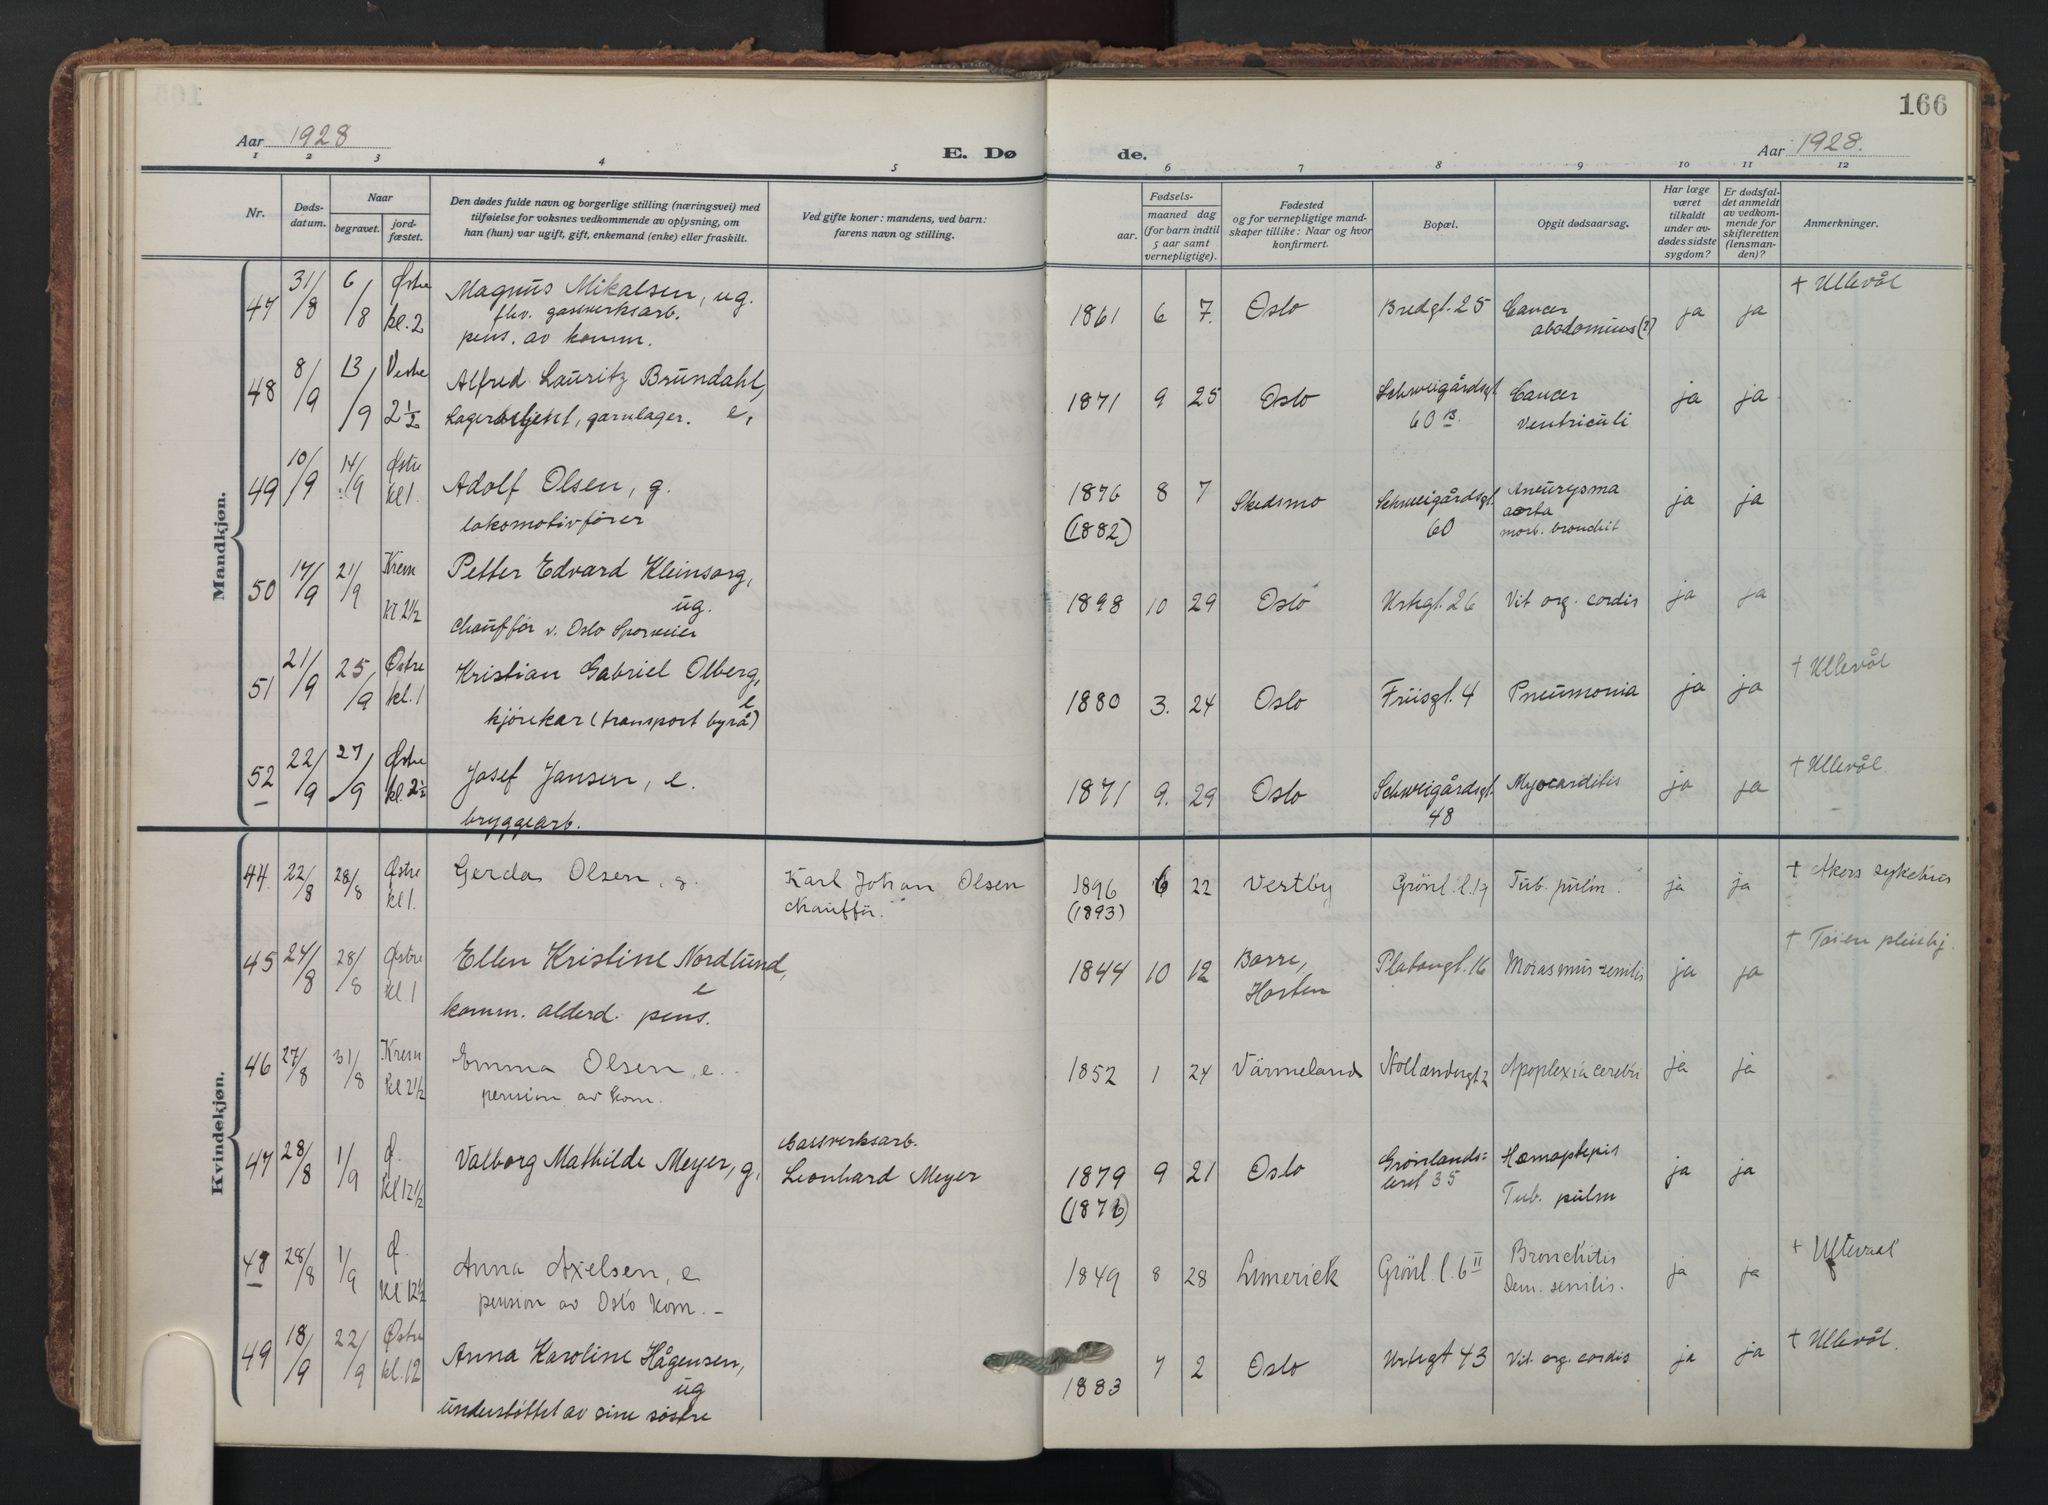 166
Aar 1928
E. Dø
de.
Aar 1928.
1 2 3 4 5 6 7 8 9 10 11 12
Nr.
Døds-
datum.
Naar
begravet.
jord-
fæstet.
Den dødes fulde navn og borgerlige stilling (næringsvei) med
tilføielse for voksnes vedkommende av oplysning, om
han (hun) var ugift, gift, enkemand (enke) eller fraskilt.
Ved gifte koner: mandens, ved barn:
farens navn og stilling.
Fødsels-
aar.
maaned dag
(for barn indtil
5 aar samt
vernepligtige).
Fødested
og for vernepligtige mand-
skaper tillike: Naar og hvor
konfirmert.
Bopæl.
Opgit dødsaarsag.
Har læge
været
tilkaldt
under av-
dødes sidste
sygdom?
Er dødsfal-
det anmeldt
av vedkom-
mende for
skifteretten
(lensman-
den)?
Anmerkninger.
Mandkjøn.
47 31/8 6/8 Østre kl. 2 Magnus Mikalsen, ug.
flv. gassverksarb.
pens. av komm.
1861 6 7. Oslo Bredgt. 25 Cancer
abdominus (?) ja ja + Ullevål
48 8/9 13/9 Vestre 2½ Alfred Lauritz Brundahl,
Lagerbetjent, garnlager. e,
1871 9 25 Oslo Schweigårdsgt.
60 B. Cancer
Ventriculi ja ja
49 10/9 14/9 Østre kl 1. Adolf Olsen, g.
lokomotivfører
1876
(1882) 8 7 Skedsmo Schweigårdsgt.
60 Aneurysma
aorta
morb. bronchit ja ja
50 17/9 21/9 Krem Kl 2½ Petter Edvard Kleinsorg,
ug.
Chauffør v. Oslo Sporveier
1898 10 29 Oslo Urtegt. 26 Vit. org. cordis ja ja
51 21/9 25/9 Østre kl. 1 Kristian Gabriel Olberg,
e
kjørekar (transport byrå)
1880 3. 24 Oslo Friisgt. 4 Pneumonia ja ja + Ullevål
52 22/9 27/9 Østre kl. 2½ Josef Jansen, e.
bryggearb.
1871 9. 29 Oslo Schweigårdsgt.
48 Myocarditis ja ja + Ullevål.
Kvindekjøn.
44 22/8 28/8 Østre kl 1. Gerda Olsen, g. Karl Johan Olsen
chauffør.
1896
(1893) 6 22 Vestby Grønl. l. 19 Tub. pulm. ja ja + Akers sykehus
45 24/8 28/8 Østre kl. 1 Ellen Kristine Nordlund,
e
komm. alderd. pens.
1844 10 12 Borre,
Horten Platougt. 16 Marasmus senilis ja ja + Tøien pleiehj.
46 27/8 31/8 Krem kl 2½ Emma Olsen, e.
pension av kom.
1852 1 24 Värmeland Hollendergt 2 Apoplexia cerebri ja ja
47 28/8 1/9 Ø. kl 12½ Valborg Mathilde Meyer, g. Gassverksarb.
Leonhard Meyer
1879
(1876) 9 21 Oslo Grønlands=
leret 35 Hæmoptepis
Tub. pulm ja ja
48 28/8 1/9 Ø. kl 12½ Anna Axelsen, e
pension av Oslo kom. –
1849 8 28 Limerick Grönl. l. 6 II Bronchitis
Dem. senilis. ja ja + Ullevaal
49 18/9 22/9 Østre kl. 12 Anna Karoline Hågensen,
ug
understøttet av sine søstre
1883 7 2 Oslo Urtegt 43 Vit. org. cordis ja ja + Ullevål.